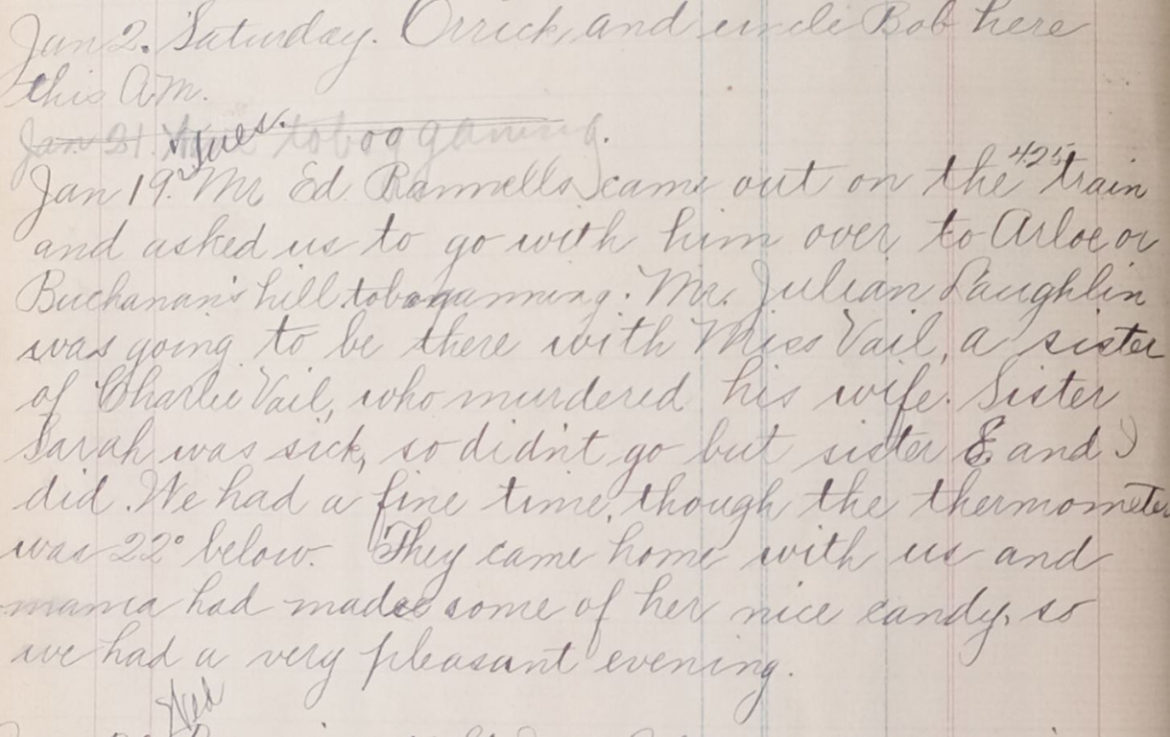 Jan 2. Saturday. Orrick, and uncle Bob here
this A.M.
Jan 21. tobogganing.
Tues.
Jan 19. Mr Ed. Rannells came out on the 4 25 train
and asked us to go with him over to Arloe or
Buchanan's hill toboganning. Mr. Julian Laughlin
was going to be there with Miss Vail, a sister
of Charlie Vail, who murdered his wife. Sister
Sarah was sick, so didn't go but sister E. and I
did. We had a fine time, though the thermometer
was 22° below. They came home with us and
mama had made some of her nice candy, so
we had a very pleasant evening.
Wed